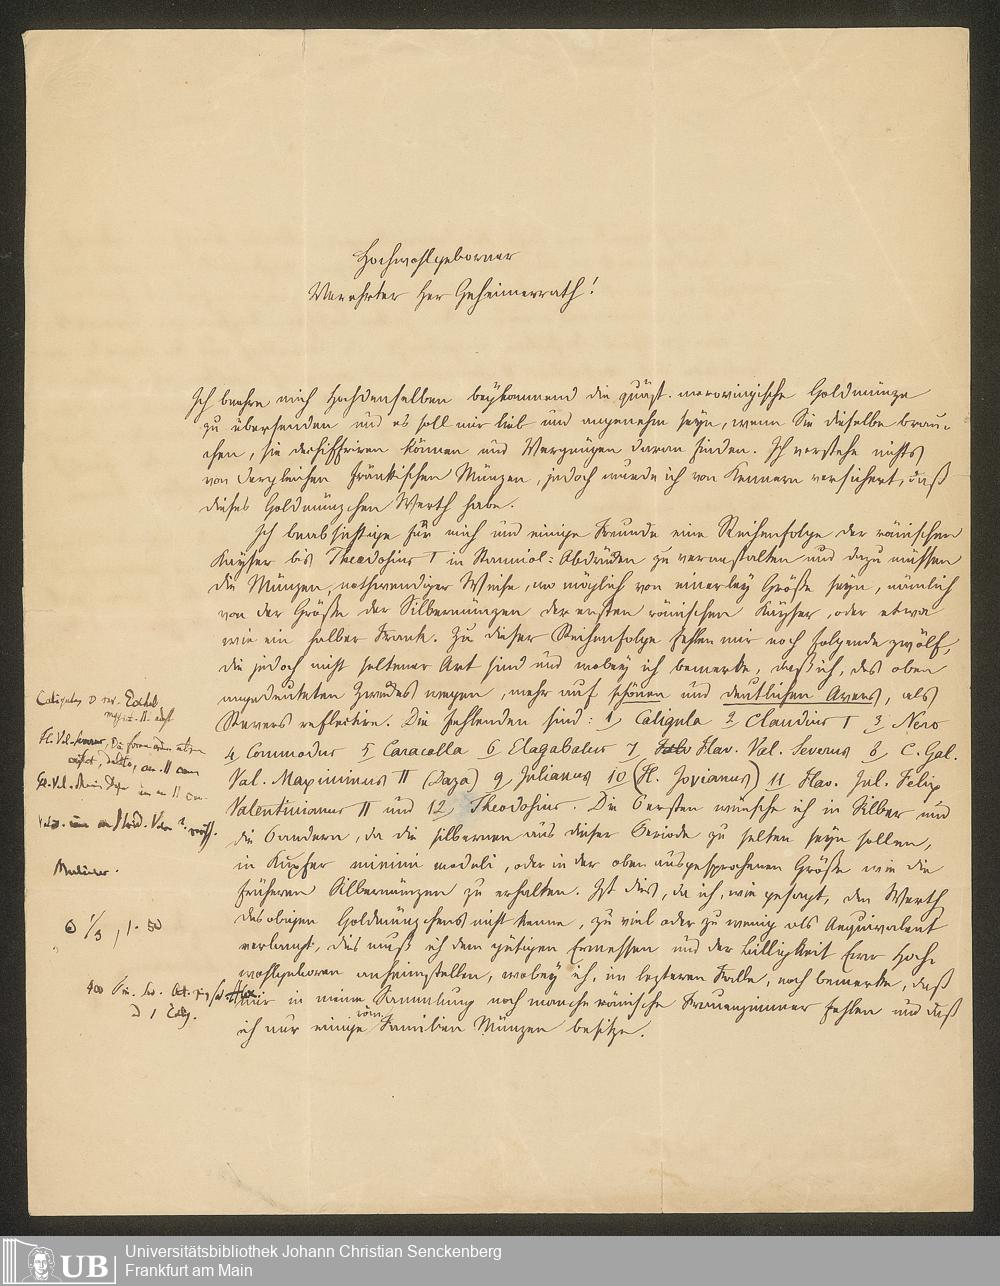 Hochwohlgeborner
Verehrter Her Geheimerrath!
Ich beehre mich Hochdenselben beÿkommend die quäst. merovingische Goldmünze
zu übersenden und es soll mir lieb und angenehm seÿn, wenn Sie dieselbe brau-
chen, sie dechiffriren können und Vergnügen daran finden. Ich verstehe nichts
von dergleichen fränkischen Münzen, jedoch wurde ich von Kennern versichert, daß
dieses Goldmünzchen Werth habe.
Ich beabsichtige für mich und einige Freunde eine Reihenfolge der römischen
Kaÿser bis Theodosius I in Stanniol-Abdrücken zu veranstalten und dazu müssen
die Münzen, nothwendiger Weise, wo möglich von einerleÿ Größe seÿn, nämlich
von der Größe der Silbermünzen der ersten römischen Kaÿser, oder etwa
wie ein halber Frank. Zu dieser Reihenfolge fehlen mir noch folgende zwölf,
die jedoch nicht seltener Art sind und wobeÿ ich bemerke, daß ich, des oben
angedeuteten Zweckes wegen, mehr auf schönen und deutlichen Avers, als
Revers reflectire. Die Fehlenden sind: 1, Caligula 2 Claudius I 3, Nero
4 Commodus 5 Caracalla 6 Elagabalus 7, Flav. Val. Severus 8 C. Gal.
Val. Maximinus II (Daza) 9 Julianus 10 (Fl. Jovianus) 11 Flav. Jul. Felix
Valentinianus II und 12 Theodosius. Die Ersten wünsche ich in Silber und
die Andern, da die silbernen aus dieser Periode zu selten seÿn sollen,
in Kupfer minimi moduli, oder in der oben ausgesprochenen Größe wie die
früheren Silbermünzen zu erhalten. Ist dies, da ich, wie gesagt, den Werth
des obigen Goldmünzchens nicht kenne, zu viel oder zu wenig als Aequivalent
verlangt, dies muß ich dem gütigen Ermessen und der Billigkeit Euer Hoch-
wohlgeboren anheimstellen, wobeÿ ich, im lezteren Falle, noch bemerke, daß
mir in meine Sammlung noch manche römische Frauenzimmer fehlen und daß
ich nur einige röm. Familien Münzen besitze.
Caligula
6 1/3, 1. 50
UB
Universitätsbibliothek Johann Christian Senckenberg
Frankfurt am Main